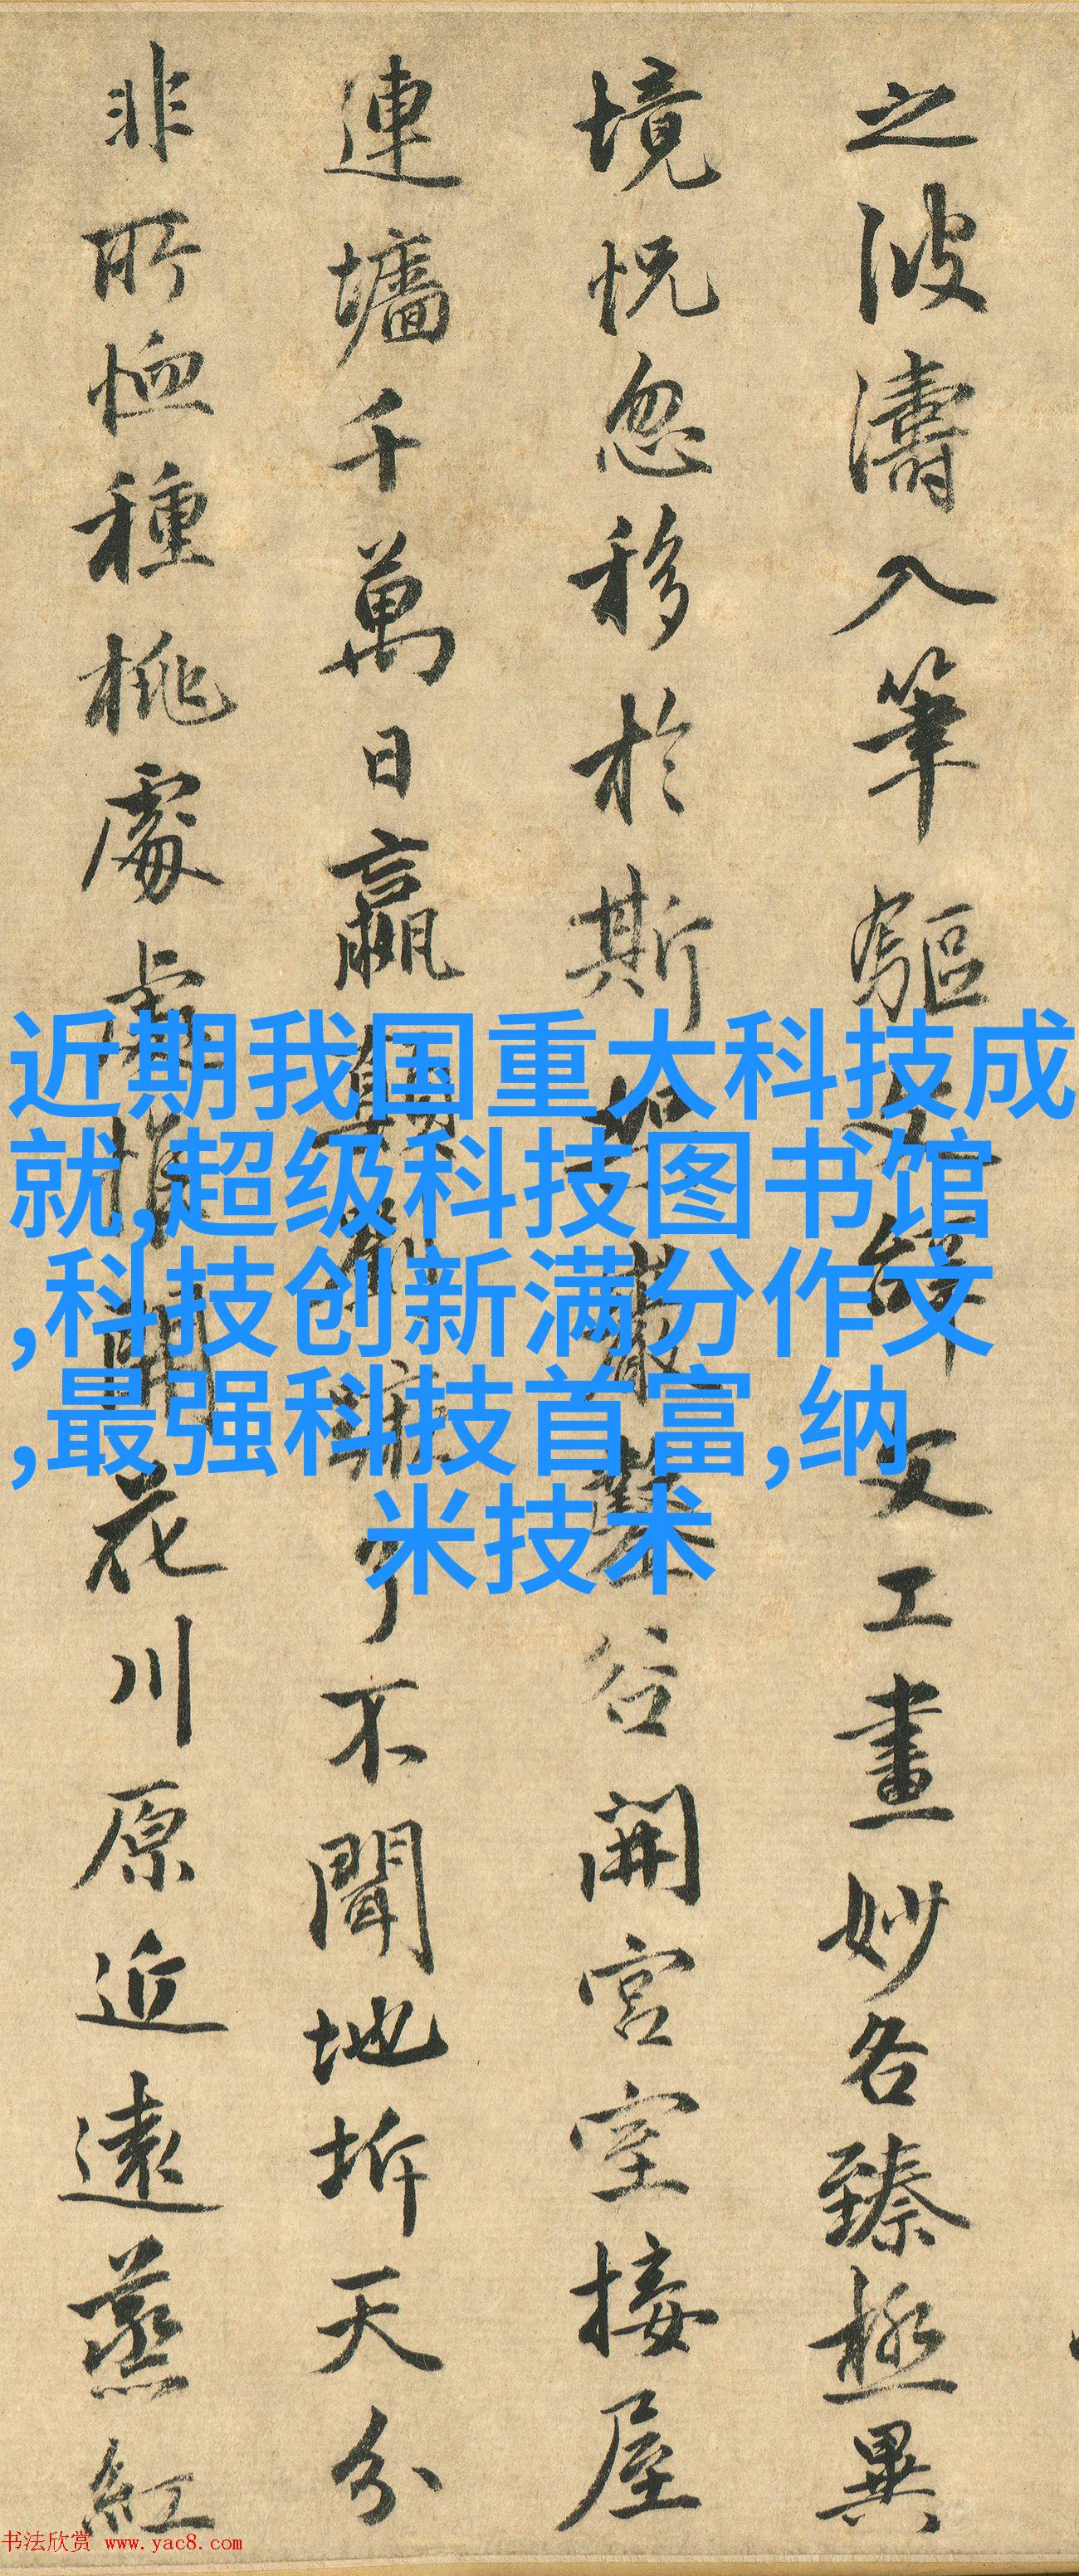 之波濤入筆驅文辭文工畫妙各臻極異
境怳忽移於斯架巖鑿谷開宮室接屋
連墻千萬日嬴顛劉蹶了不聞地坼天分
非所恤種桃處處惟開花川原近遠蒸紅
近期我国重大科技成
就,超级科技图书馆
,科技创新满分作文
,最强科技首富,纳
米技术
书法欣赏 www.yac8.com